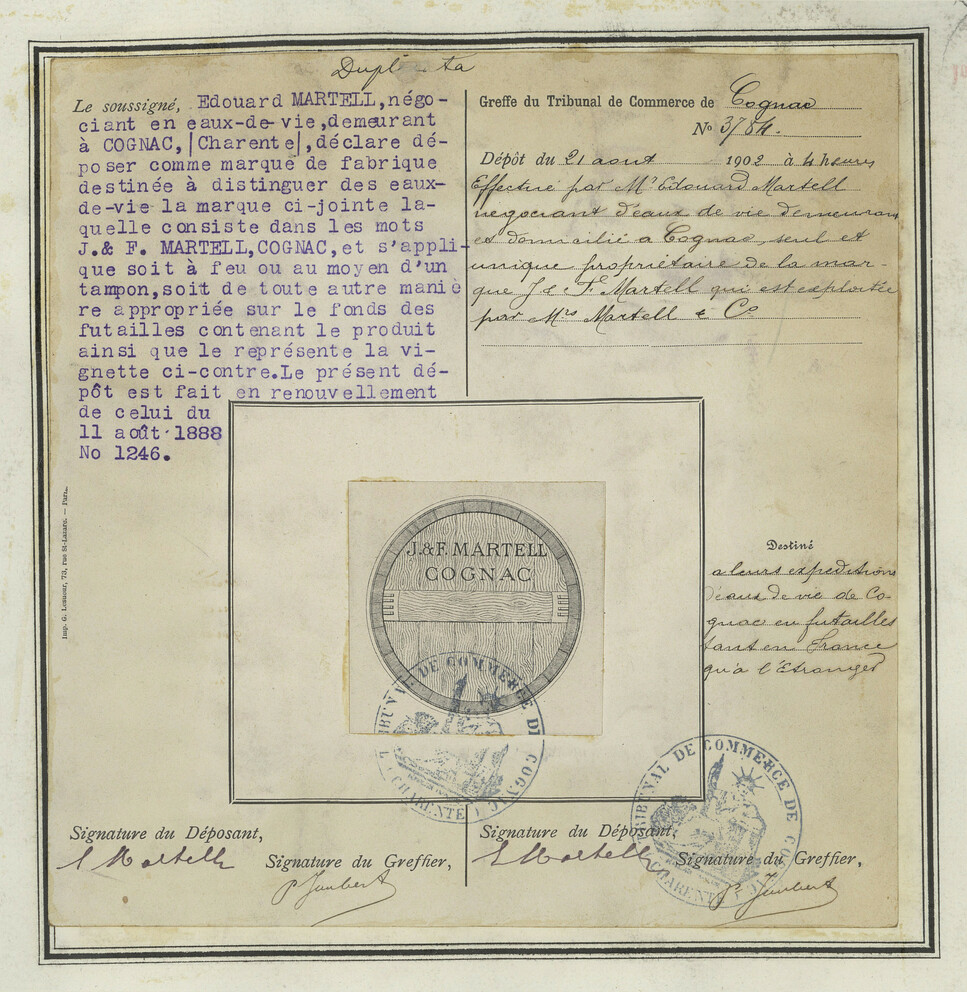 Duplicata
Le soussigné, Edouard MARTELL, négo-
ciant en eaux-de-vie, demeurant
à COGNAC, |Charente|, déclare dé-
poser comme marque de fabrique
destinée à distinguer des eaux-
de-vie la marque ci-jointe la-
quelle consiste dans les mots
J.& F. MARTELL, COGNAC, et s'appli-
que soit à feu ou au moyen d'un
tampon, soit de toute autre maniè
re appropriée sur le fonds des
futailles contenant le produit
ainsi que le représente la vi-
gnette ci-contre. Le présent dé-
pôt est fait en renouvellement
de celui du
11 août 1888
No 1246.
Imp. G. Lesueur, 73, rue St-Lazare. — Paris.
Greffe du Tribunal de Commerce de Cognac
No 3784.
Dépôt du 21 aout 1902 à 4 heures
Effectué par Mr Edouard Martell
negociant d'eaux de vie demeurant
et domicilié a Cognac, seul et
unique propriétaire de la mar-
que J & F Martell qui est exploitée
par Mrs Martell & Co
J.&F. MARTELL
COGNAC
Destiné
a leurs expeditions
d'eaux de vie de Co-
gnac en futailles
tant en France
qu'a l'Etranger
TRIBUNAL DE COMMERCE DE COGNAC
CHARENTE
TRIBUNAL DE COMMERCE DE COGNAC
CHARENTE
Signature du Déposant,
E Martell
Signature du Greffier,
P. Jaubert
Signature du Déposant,
E Martell
Signature du Greffier,
P. Jaubert